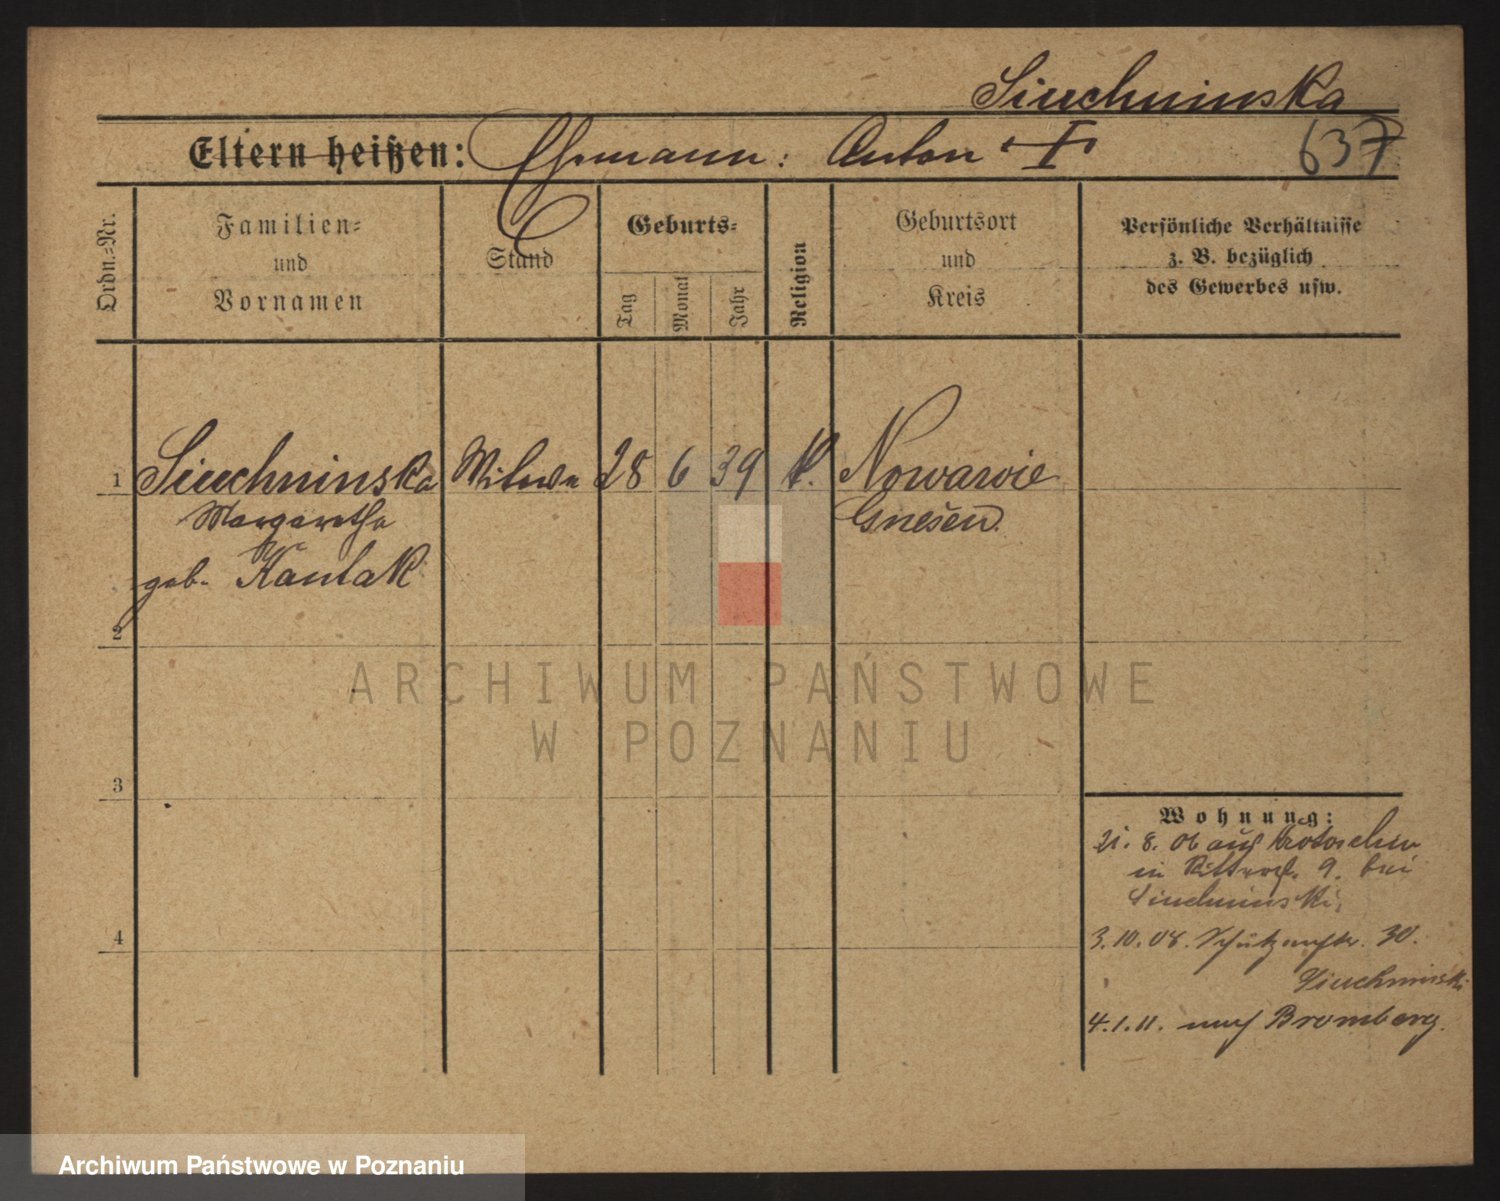 Siuchninska
Eltern heißen: Ehemann: Anton †
637
Ordn.-Nr.
Familien-
und
Vornamen
Stand
Geburts-
Tag
Monat
Jahr
Religion
Geburtsort
und
Kreis
Persönliche Verhältnisse
z. B. bezüglich
des Gewerbes usw.
1 Siuchninska Witwe 28 6 39 k. Nowawie
Margaretha Gnesen
geb. Kantak
2
3
4
Wohnung:
21. 8. 06 aus Krotoschin
in Ritterst. 9. bei
Siuchninski,
3.10.08. Schützenstr. 30.
Siuchninski
4.1.11. nach Bromberg.
ARCHIWUM PAŃSTWOWE
W POZNANIU
Archiwum Państwowe w Poznaniu